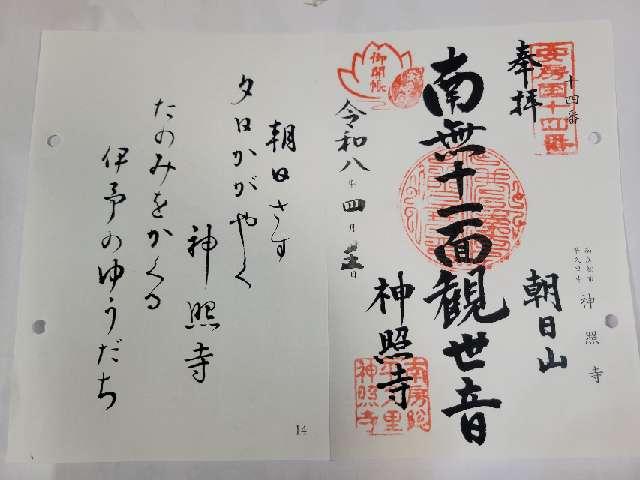 安房国十四番
十四番
奉拝
朝日山
神照寺
南無十一面観世音
神照寺
御開帳
令和八年四月五日
神照寺
朝日さす
夕日かがやく
神照寺
たのみをかくる
伊予のゆうだち
14